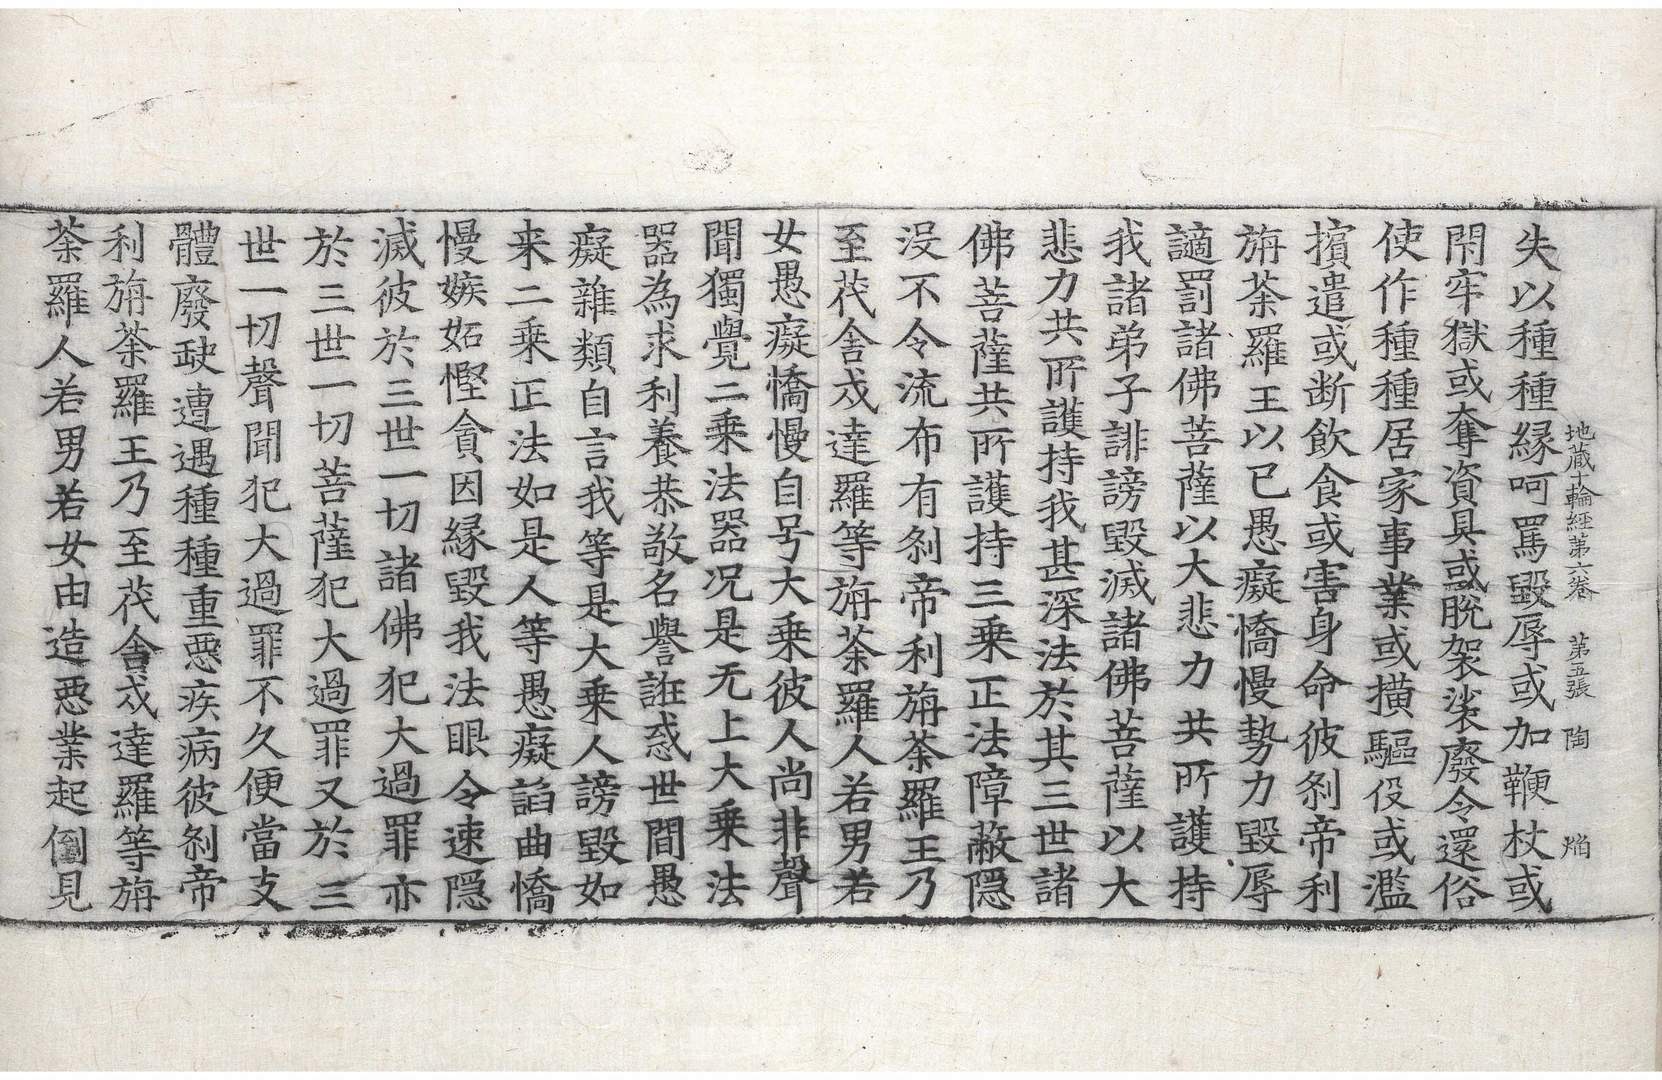 地蔵十輪經第六卷　第五張　陶　焰
失以種種緣呵罵毀辱或加鞭杖或
閇牢獄或奪資具或脫袈裟廢令還俗
使作種種居家事業或撗驅伇或濫
擯遣或断飲食或害身命彼剎帝利
旃荼羅王以已愚癡憍慢勢力毀辱
讁罰諸佛菩薩以大悲力共所護持
我諸弟子誹謗毀滅諸佛菩薩以大
悲力共所護持我甚深法於其三世諸
佛菩薩共所護持三乗正法障蔽隱
没不令流布有剎帝利旃荼羅王乃
至茷舍戍達羅等旃荼羅人若男若
女愚癡憍慢自号大乗彼人尚非聲
聞獨覺二乗法器况是无上大乗法
器為求利養恭敬名譽誑惑世間愚
癡雜類自言我等是大乗人謗毀如
来二乗正法如是人等愚癡諂曲憍
慢嫉妬慳貪因緣毀我法眼令速隱
滅彼於三世一切諸佛犯大過罪亦
於三世一切菩薩犯大過罪又於三
世一切聲聞犯大過罪不久便當支
體廢缺遭遇種種重惡疾病彼剎帝
利旃荼羅王乃至茷舍戍達羅等旃
荼羅人若男若女由造惡業起倒見